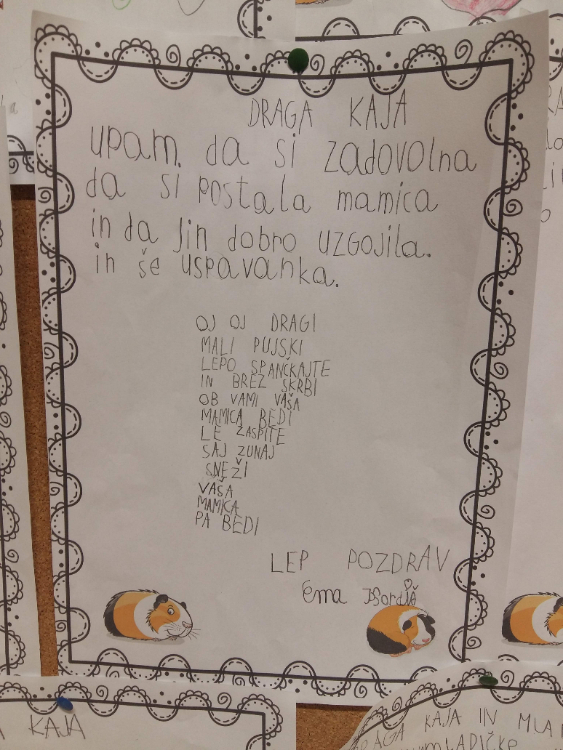 DRAGA KAJA
upam. da si zadovolna
da si postala mamica
in da jin dobro uzgojila.
in še uspavanka.
OJ OJ DRAGI
MALI PUJSKI
LEPO SPANCKAJTE
IN BREZ SKRBI
OB VAMI VAŠA
MAMICA BEDI
LE ZASPITE
SAJ ZUNAJ
SNEŽI
VAŠA
MAMICA
PA BEDI
LEP POZDRAV
Ema
KAJA
KAJA IN